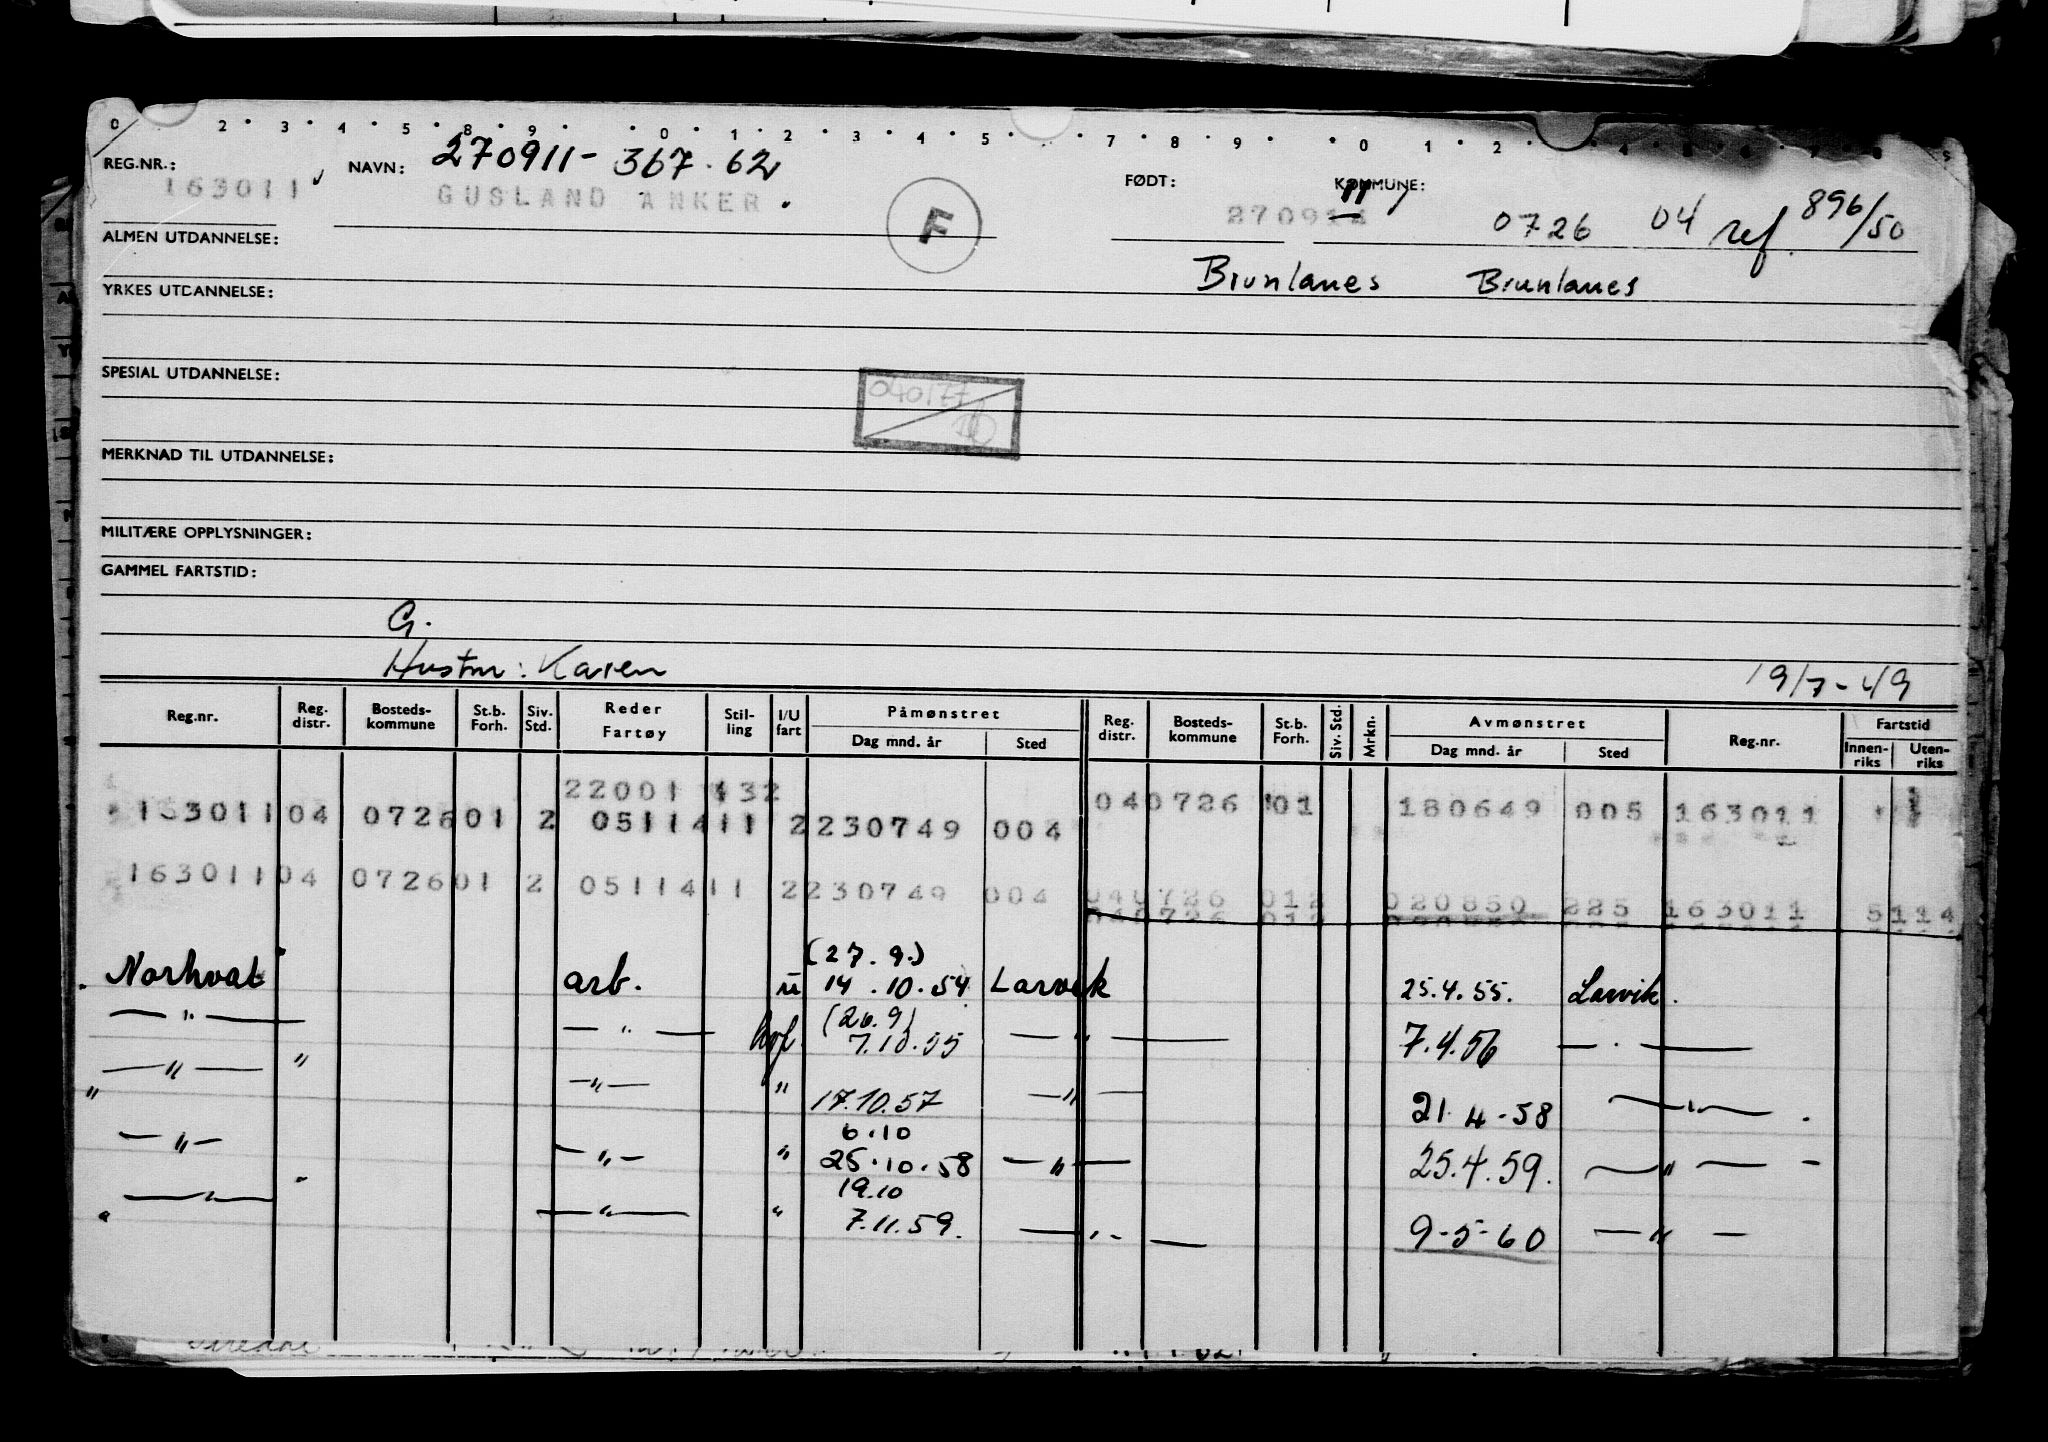 0 2 3 4 5 8 9 0 1 2 3 4 5 7 8 9 0 1 2 4 5 6 7 8 9
REG.NR.: NAVN: 270911- 367.62 FØDT: KOMMUNE:
163011 GUSLAND ANKER. F 270914 11 0726 04 ref. 896/50
ALMEN UTDANNELSE:
Brunlanes Brunlanes
YRKES UTDANNELSE:
SPESIAL UTDANNELSE:
040177
MERKNAD TIL UTDANNELSE:
MILITÆRE OPPLYSNINGER:
GAMMEL FARTSTID:
G.
Hustru: Karen 19/7-49
Reg.nr. Reg. distr. Bosteds-kommune St.b. Forh. Siv. Std. Reder Fartøy Stil-ling I/U fart Påmønstret Dag mnd. år Sted Reg. distr. Bosteds-kommune St.b. Forh. Siv. Std. Mrkn. Avmønstret Dag mnd. år Sted Reg.nr. Fartstid Innen-riks Uten-riks
22001 432 040726 01 180649 005 163011
163011 04 0726 01 2 0511411 2 230749 004
163011 04 0726 01 2 0511411 2 230749 004 040726 012 020850 225 163011 5114
040726 012
(27.9.)
Norhval arb. u 14.10.54 Larvik 25.4.55. Larvik.
(26.9)
— " — — " — hvf. 7.10.55 — " — 7.4.56 — " —
— " — " — " — " 17.10.57 — " — 21.4-58 — " — .
"
6.10
— " — — " — " 25.10.58 — " — 25.4.59. — " — -
19.10
— " — — " — " 7.11.59. — " — 9-5-60 — " —